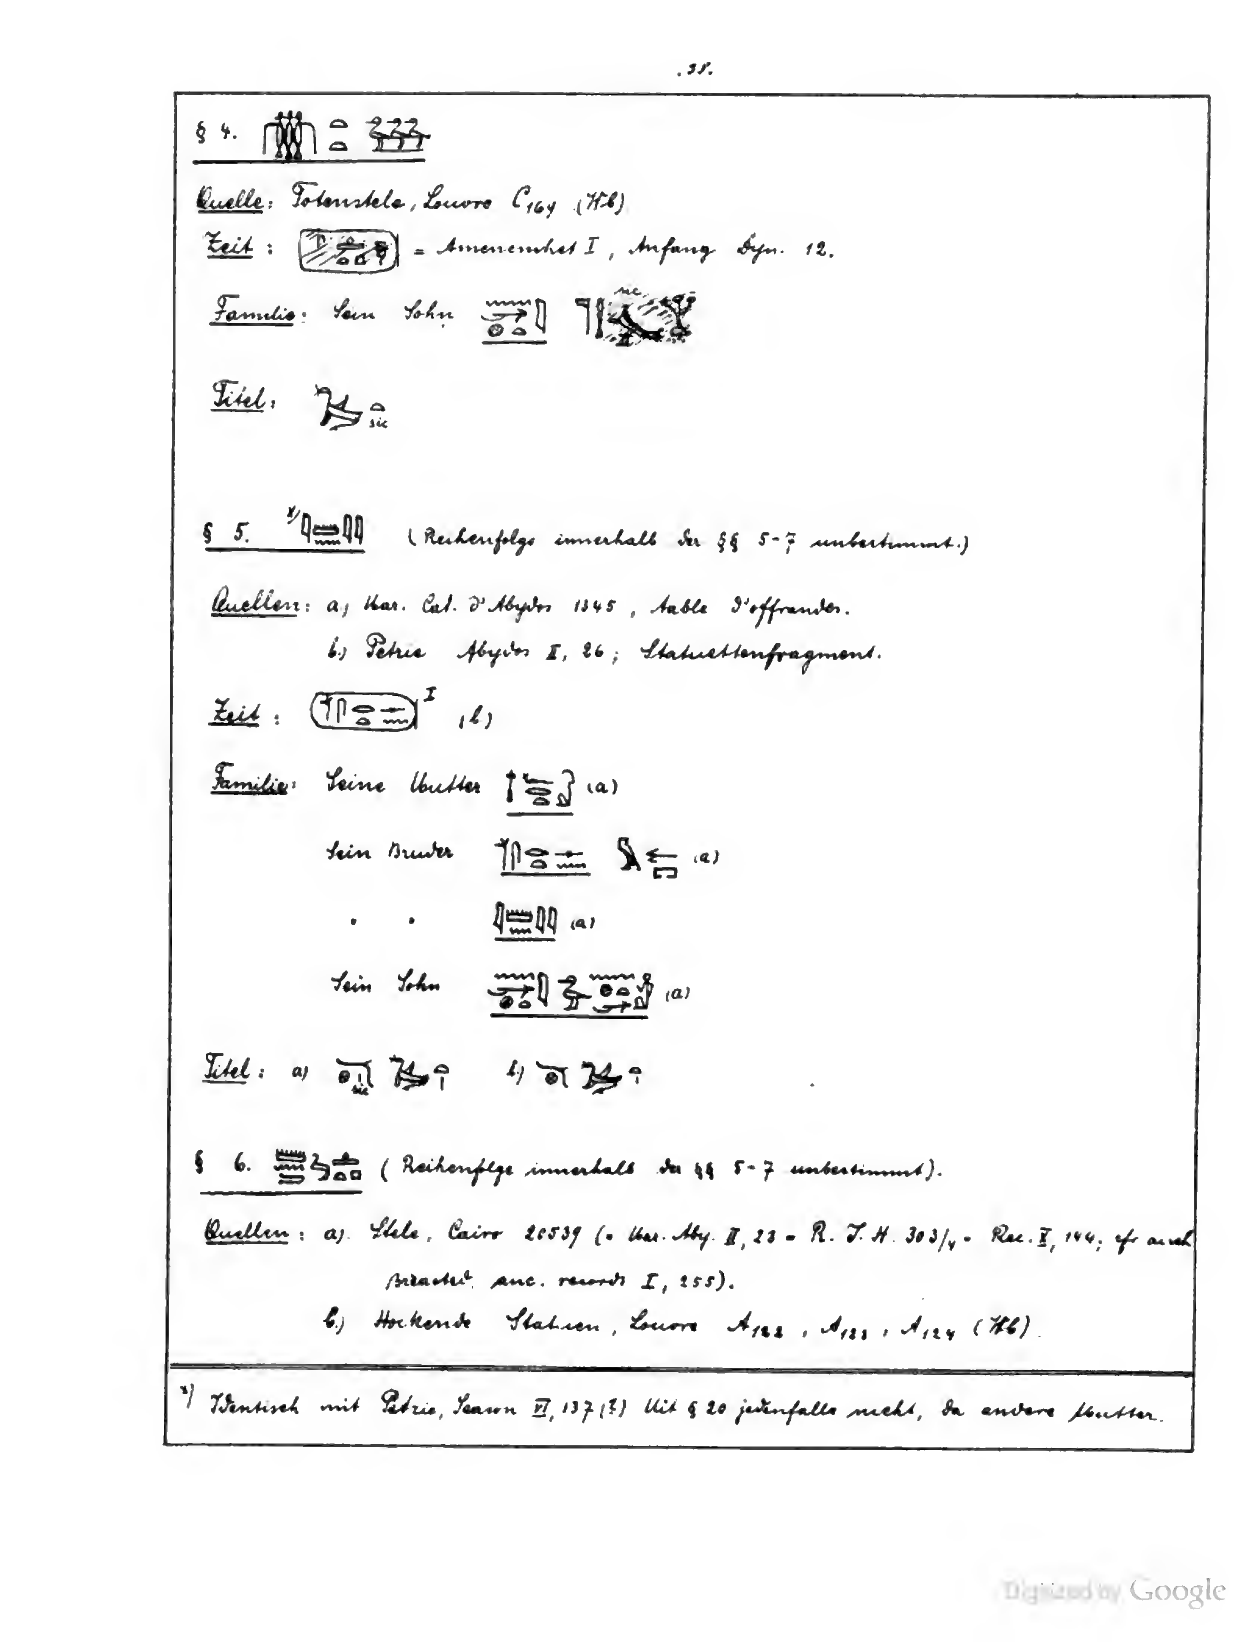 .38.
§ 4.
Quelle: Totenstele, Louvre C164 (Hb)
Zeit: = Amenemhet I, Anfang Dyn. 12.
Familie: Sein Sohn sic
Titel: sic
§ 5. x) (Reihenfolge innerhalb der §§ 5-7 unbestimmt.)
Quellen: a) Mar. Cat. d'Abydos 1345, table d'offrandes.
b.) Petrie Abydos II, 26; Statuettenfragment.
Zeit: I (b)
Familie: Seine Mutter (a)
Sein Bruder (a)
" " (a)
Sein Sohn (a)
Titel: a) sic b)
§ 6. (Reihenfolge innerhalb der §§ 5-7 unbestimmt).
Quellen: a). Stele, Cairo 20539 (= Mar. Aby. II, 23 = R. J. H. 303/4 = Rec. X, 144; cfr auch
Breasted, anc. records I, 255).
b.) Hockende Statuen, Louvre A122, A123, A124 (Hb).
x) Identisch mit Petrie, Season VI, 137 (?) Mit § 20 jedenfalls nicht, da andere Mutter.
Digitized by Google